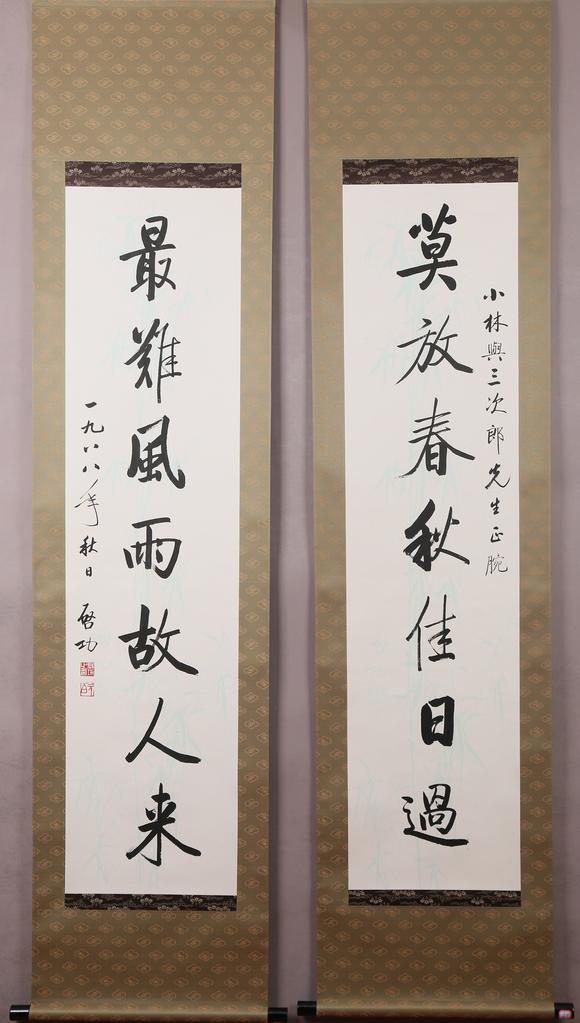 小林與三次郎先生正腕
莫放春秋佳日過
最難風雨故人来
一九八八年秋日 啓功